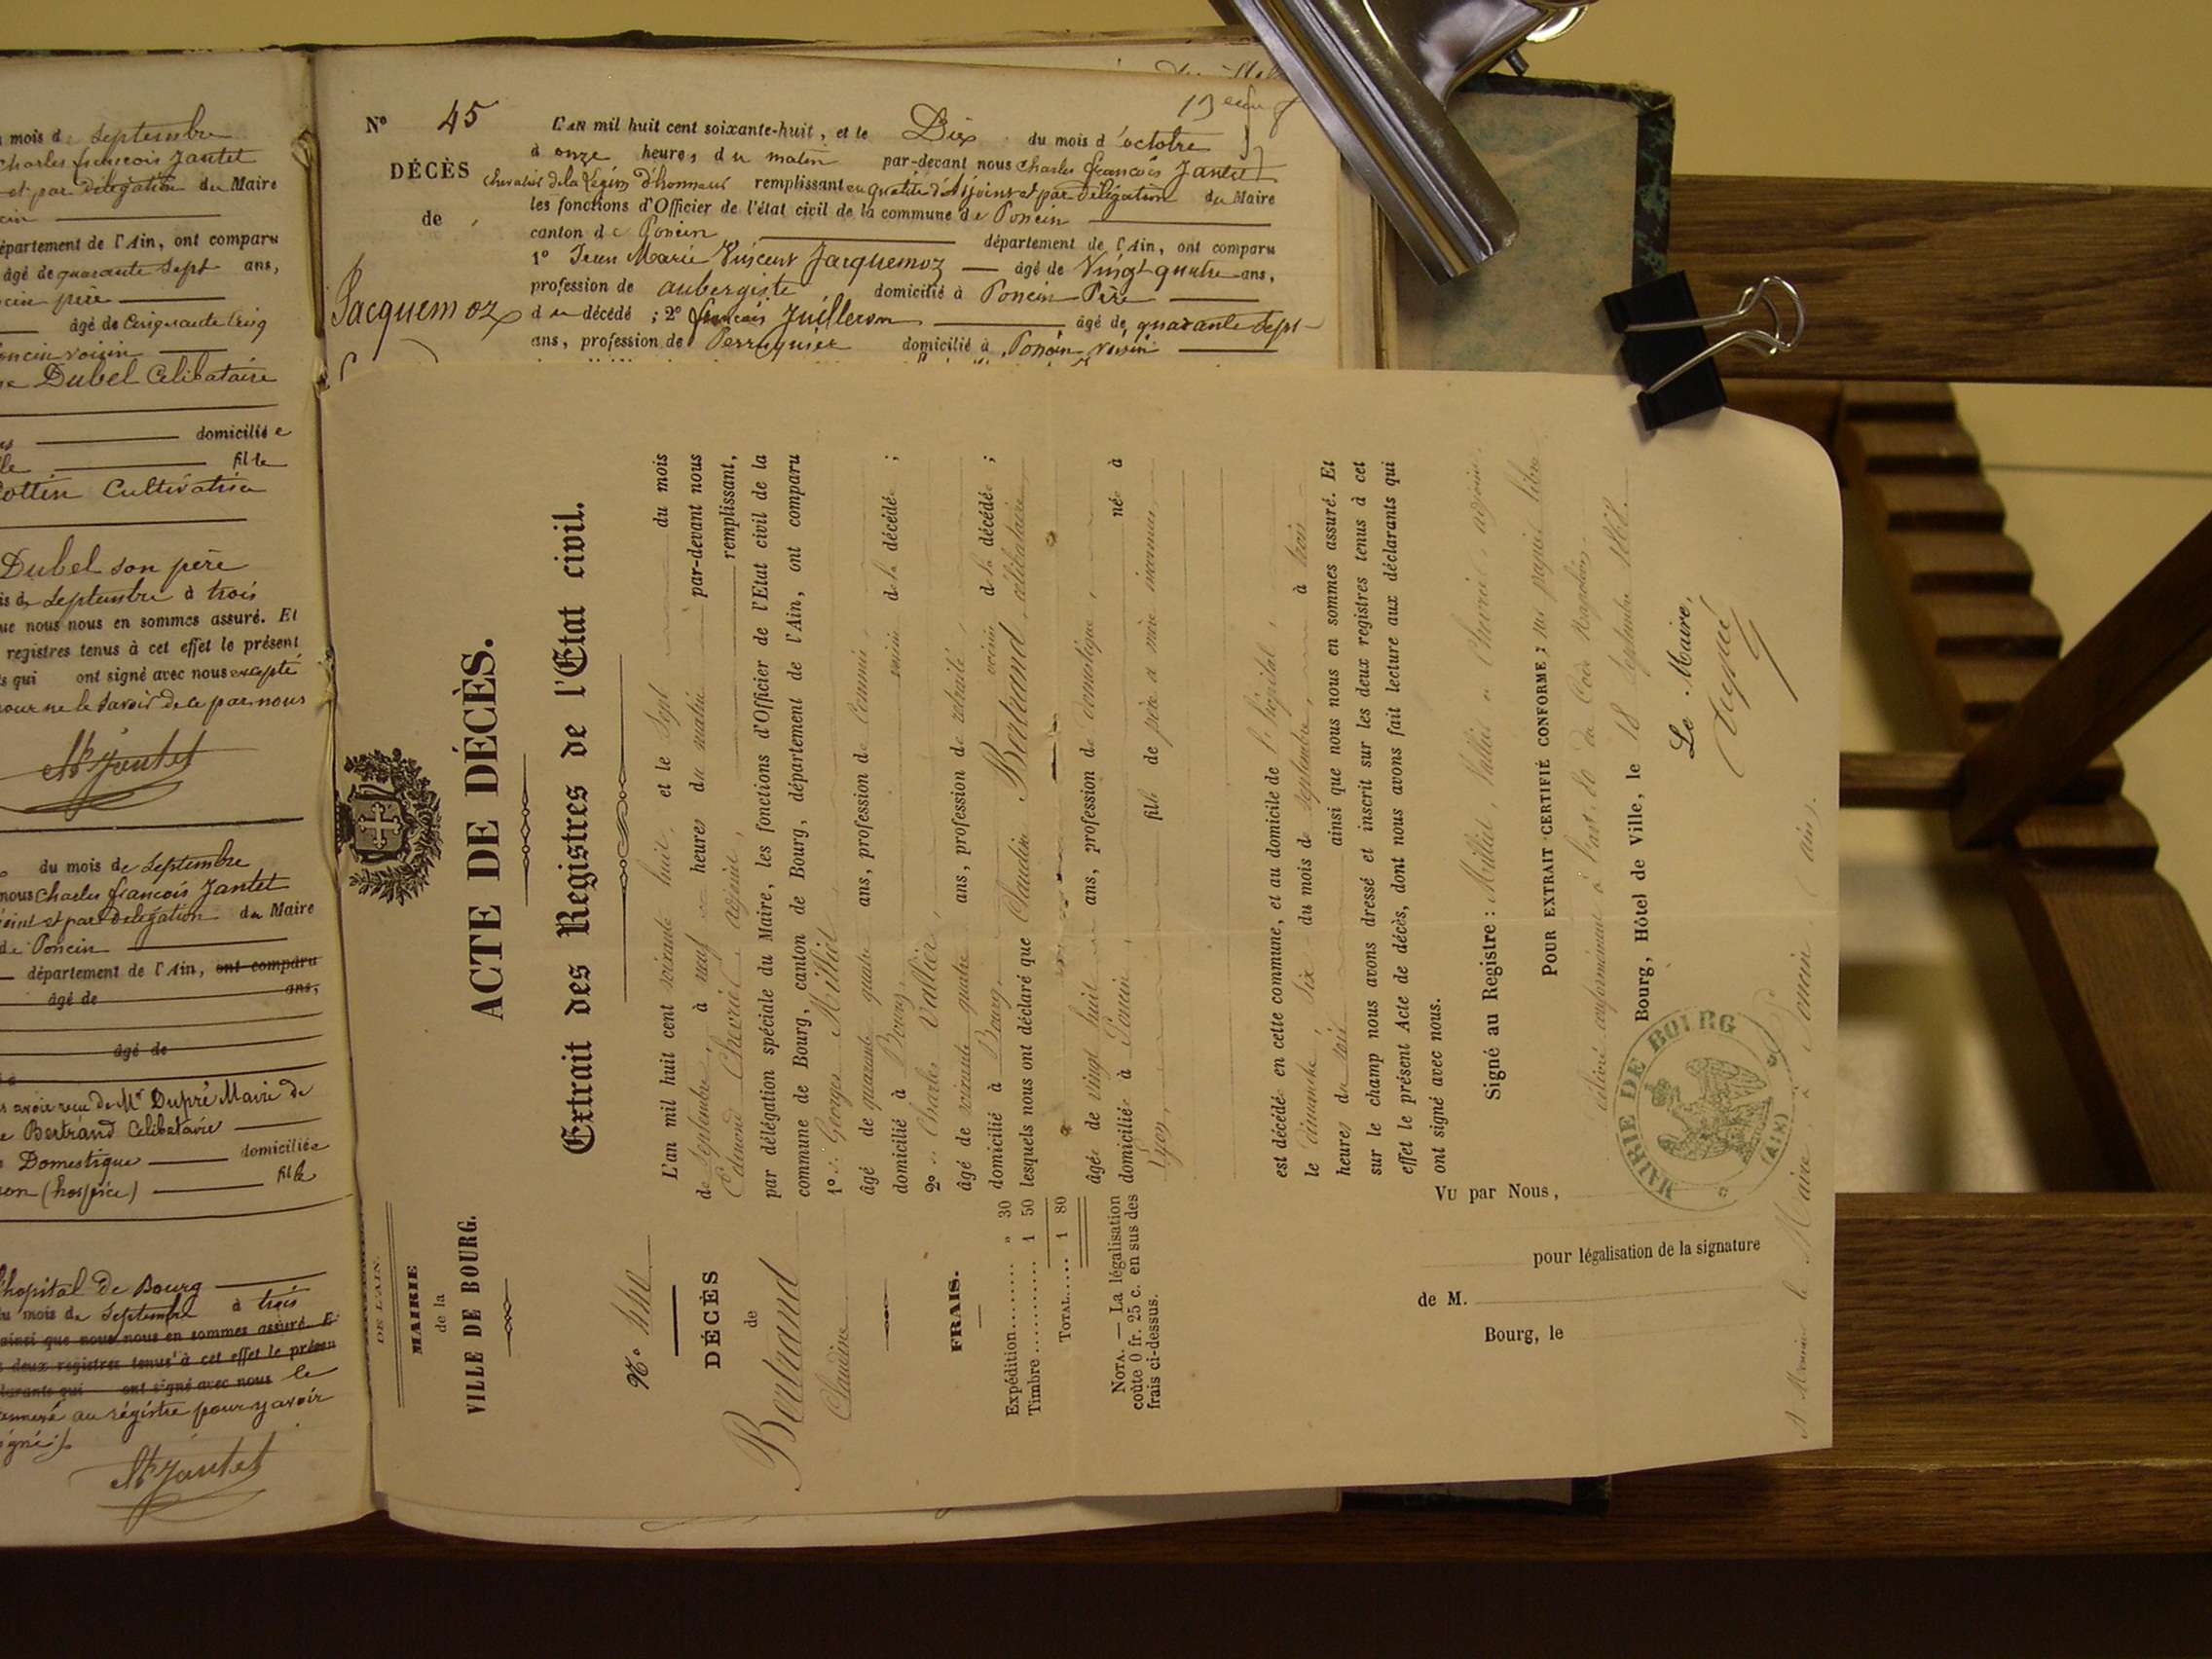 mois de Septembre
Charles françois Jantet
et par Délégation du Maire
département de l'Ain, ont comparu
âgé de quarante Sept ans,
père
âgé de Cinquante Cinq
voisin
Dubel Célibataire
domicilié e
fille
Cottin Cultivatrice
Dubel son père
de Septembre à trois
que nous nous en sommes assuré. Et
registres tenus à cet effet le présent
qui ont signé avec nous excepté
pour ne le Savoir de ce par nous
Jantet
du mois de Septembre
nous Charles françois Jantet
et par Délégation du Maire
de Poncin
département de l'Ain, ont comparu
âgé de ans,
âgé de
avoir reçu de Mr Dupré Maire de
Bertrand Célibataire
Domestique domiciliée
(hospice) fille
l'hopital de Bourg
du mois de Septembre à trois
ainsi que nous nous en sommes assuré. E
deux registres tenus à cet effet le présen
ont signé avec nous le
annexé au régistre pour y avoir
signé
Jantet
N° 45
DÉCÈS
de
Jacquemoz
L'AN mil huit cent soixante-huit, et le Dix du mois d'octobre
à onze heures du matin par-devant nous Charles françois Jantet
Chevalier de la Légion d'honneur remplissant en qualité d'Adjoint et par Délégation du Maire
les fonctions d'Officier de l'état civil de la commune de Poncin
canton de Poncin département de l'Ain, ont comparu
1° Jean Marie Vincent Jacquemoz âgé de Vingt quatre ans,
profession de aubergiste domicilié à Poncin Père
du décédé ; 2° françois Juilleron âgé de quarante Sept
ans, profession de Perruquier domicilié à Poncin voisin
DE L'AIN.
MAIRIE
de la
VILLE DE BOURG.
N° 440
DÉCÈS
de
Bertrand
Claudine
FRAIS.
Expédition........ » 30
Timbre........... 1 50
TOTAL..... 1 80
NOTA. — La légalisation
coûte 0 fr. 25 c. en sus des
frais ci-dessus.
ACTE DE DÉCÈS.
Extrait des Registres de l'Etat civil.
L'an mil huit cent soixante huit, et le Sept du mois
de Septembre, à neuf heures du matin par-devant nous
Edmond Chevrier, adjoint, remplissant,
par délégation spéciale du Maire, les fonctions d'Officier de l'Etat civil de la
commune de Bourg, canton de Bourg, département de l'Ain, ont comparu
1° Georges Milliet
âgé de quarante quatre ans, profession de Commis,
domicilié à Bourg, voisin de la décédée ;
2° Charles Vallier,
âgé de soixante quatre ans, profession de retraité,
domicilié à Bourg, voisin de la décédée ;
lesquels nous ont déclaré que Claudine Bertrand, célibataire,
âgée de vingt huit ans, profession de domestique,
domiciliée à Poncin, née à
Lyon, fille de père et mère inconnus,
est décédée en cette commune, et au domicile de l'hôpital,
le dimanche, Six du mois de Septembre, à trois
heures du soir ainsi que nous nous en sommes assuré. Et
sur le champ nous avons dressé et inscrit sur les deux registres tenus à cet
effet le présent Acte de décès, dont nous avons fait lecture aux déclarants qui
ont signé avec nous.
Signé au Registre : Milliet, Vallier et Chevrier adjoint.
POUR EXTRAIT CERTIFIÉ CONFORME ; sur papier libre
délivré conformément à l'art. 80 du Code Napoléon.
Bourg, Hôtel de Ville, le 18 Septembre 1868.
Le Maire,
Dupré
MAIRIE DE BOURG
(AIN)
VU par Nous,
pour légalisation de la signature
de M.
Bourg, le
A Monsieur le Maire, à Poncin (ain).